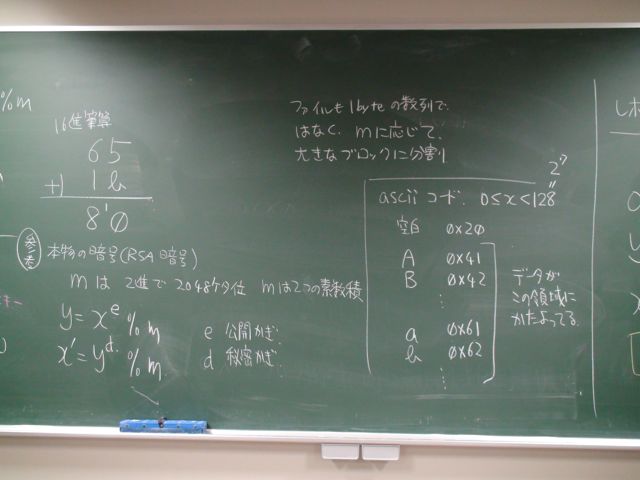 %m
16進筆算
65
+) 1b
8'0
参考
本物の暗号(RSA暗号)
mは 2進で 2048ケタ位 mは2つの素数積
y = x^e % m
x' = y^d % m
e 公開かぎ.
d 秘密かぎ.
ファイルも1byteの数列で
はなく、mに応じて、
大きなブロックに分割
2^7
"
ascii コード. 0≤x<128
空白 0x20
A 0x41
B 0x42
⋮
a 0x61
b 0x62
⋮
データが
この領域に
かたよってる.